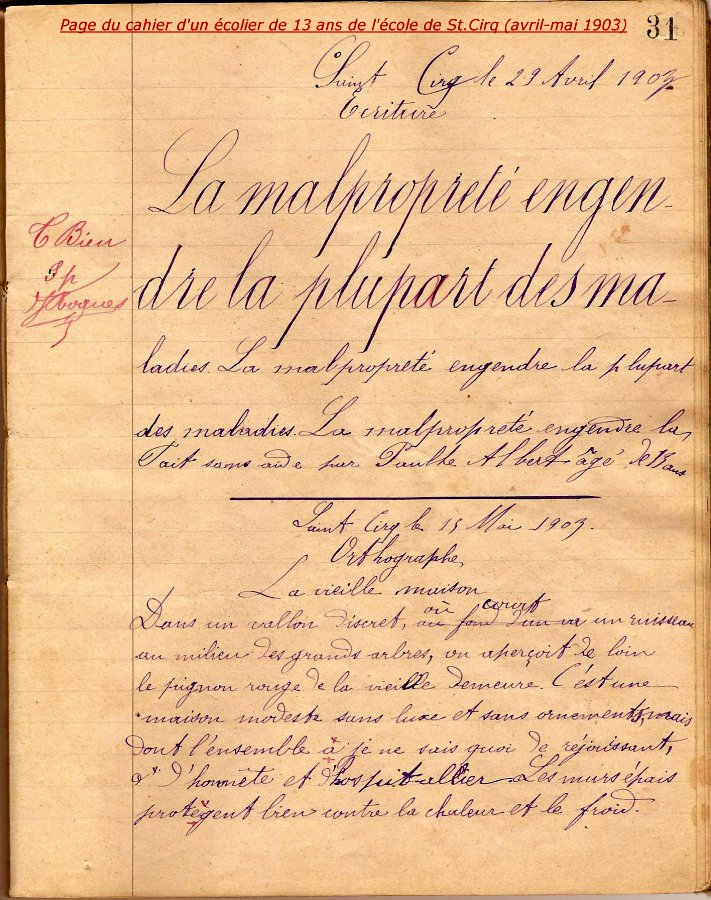 Page du cahier d'un écolier de 13 ans de l'école de St.Cirq (avril-mai 1903)
31
Saint Cirq le 29 Avril 1903
Ecriture
La malpropreté engen-
dre la plupart des ma-
T Bien
9p
ladies. La malpropreté engendre la plupart
des maladies. La malpropreté engendre la
Fait sans aide par Albert âgé de 13 ans
Saint Cirq le 15 Mai 1903.
Orthographe
La vieille maison
où court
Dans un vallon discret, au fond d'un va un ruisseau
au milieu des grands arbres, on aperçoit de loin
le pignon rouge de la vieille demeure. C'est une
maison modeste sans luxe et sans ornements, mais
dont l'ensemble à je ne sais quoi de réjouissant,
d'honnête et d'hospitallier. Les murs épais
protègent bien contre la chaleur et le froid.